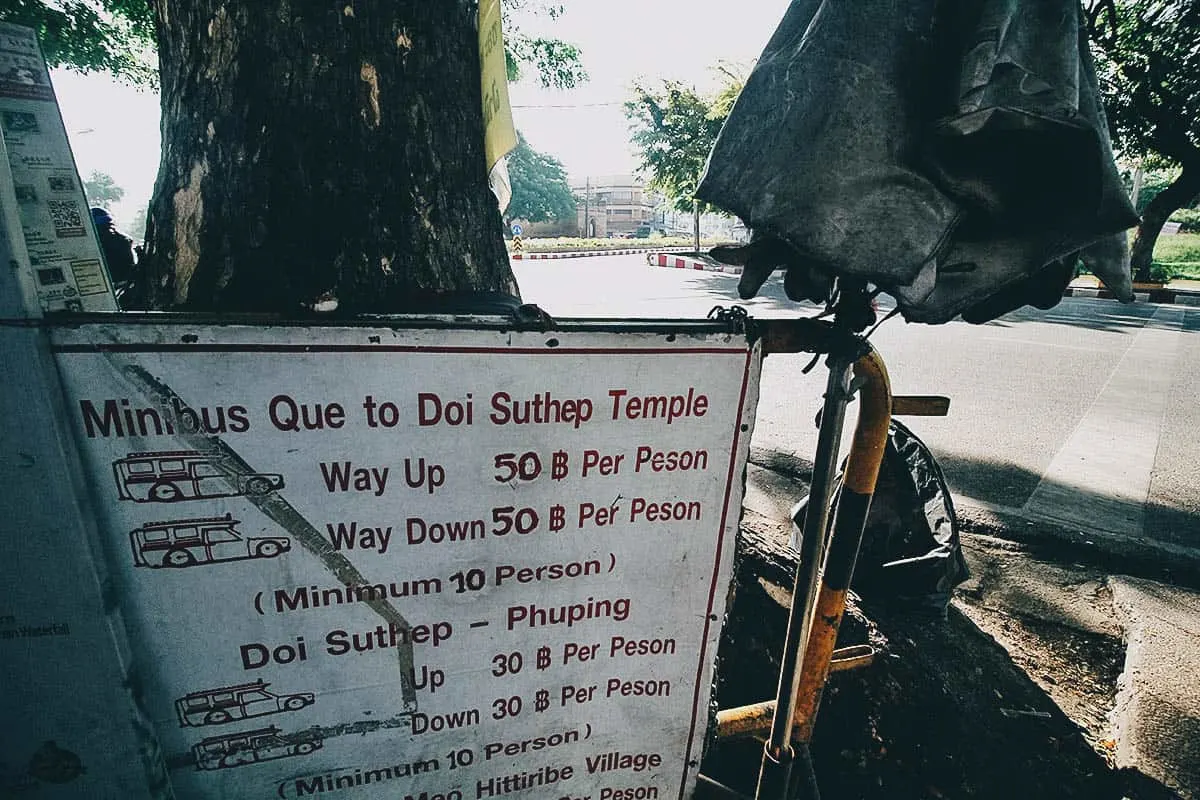 Minibus Que to Doi Suthep Temple
Way Up 50 ฿ Per Peson
Way Down 50 ฿ Per Peson
(Minimum 10 Person)
Doi Suthep - Phuping
Up 30 ฿ Per Peson
Down 30 ฿ Per Peson
(Minimum 10 Person)
Meo Hittiribe Village
Per Peson
Waterfall